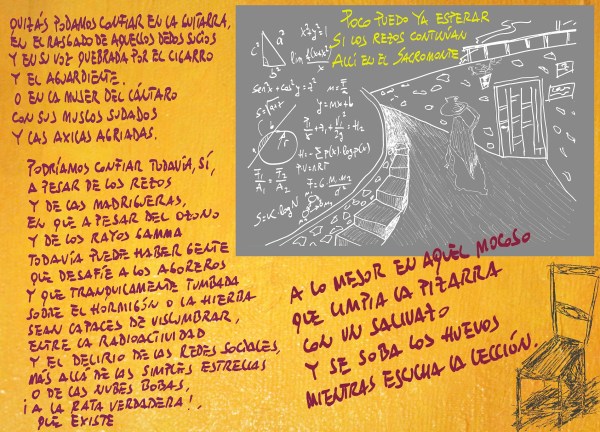 QUIZÁS PODAMOS CONFIAR EN LA GUITARRA,
EN EL RASGADO DE AQUELLOS DEDOS SUCIOS
Y EN SU VOZ QUEBRADA POR EL CIGARRO
Y EL AGUARDIENTE.
O EN LA MUJER DEL CÁNTARO
CON SUS MUSLOS SUDADOS
Y LAS AXILAS AGRIADAS.
PODRÍAMOS CONFIAR TODAVÍA, SÍ,
A PESAR DE LOS REZOS
Y DE LAS MADRIGUERAS,
EN QUE A PESAR DEL OZONO
Y DE LOS RAYOS GAMMA
TODAVÍA PUEDE HABER GENTE
QUE DESAFÍE A LOS AGOREROS
Y QUE TRANQUILAMENTE TUMBADA
SOBRE EL HORMIGÓN O LA HIERBA
SEAN CAPACES DE VISLUMBRAR,
ENTRE LA RADIOACTIVIDAD
Y EL DELIRIO DE LAS REDES SOCIALES,
MÁS ALLÁ DE LAS SIMPLES ESTRELLAS
O DE LAS NUBES BOBAS,
¡A LA RATA VERDADERA!,
QUE EXISTE
POCO PUEDO YA ESPERAR
SI LOS REZOS CONTINÚAN
ALLÍ EN EL SACROMONTE
c² a² b²
x²y²=1
sen²x + cos²y = z²
y=mx+b
H = -∑ p(x) · log p(x)
PV = nRT
S=K·log N
A LO MEJOR EN AQUEL MOCOSO
QUE LIMPIA LA PIZARRA
CON UN SALIVAZO
Y SE SOBA LOS HUEVOS
MIENTRAS ESCUCHA LA LECCIÓN.